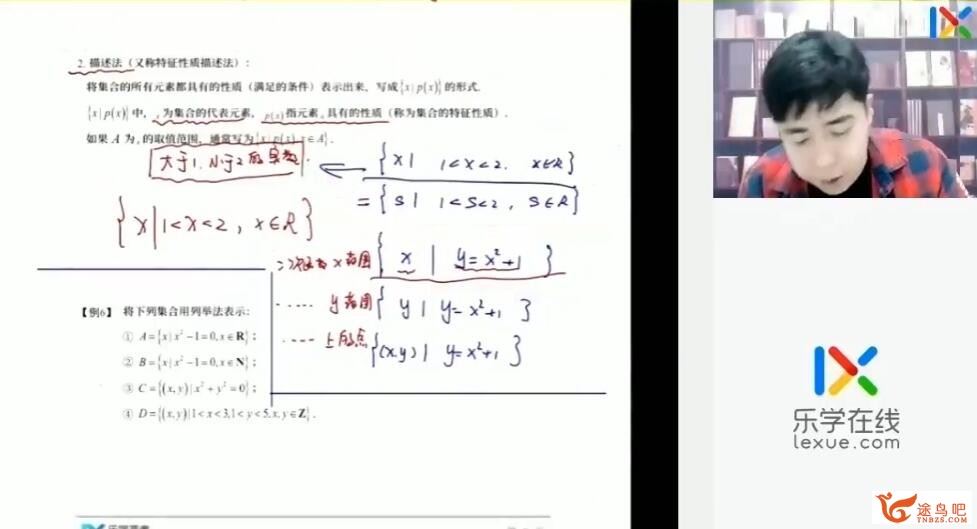 2. 描述法（又称特征性质描述法）：
将集合的所有元素都具有的性质（满足的条件）表示出来，写成{x|p(x)}的形式.
{x|p(x)}中，x为集合的代表元素，p(x)指元素x具有的性质（称为集合的特征性质）.
如果A为x的取值范围，通常写为{x|p(x), x∈A}.
大于1.小于2的实数.
{x| 1<x<2. x∈R}
={s| 1<s<2, s∈R}
{x|1<x<2, x∈R}
x范围{x | y=x²+1}
..... y范围{y| y=x²+1}
..... 上的点{(x.y)| y=x²+1}
【例6】 将下列集合用列举法表示：
① A={x|x²-1=0,x∈R}；
② B={x|x²-1=0,x∈N}；
③ C={(x,y)|x²+y²=0}；
④ D={(x,y)|1<x<3,1<y<5,x,y∈Z}.
乐学在线
lexue.com
途鸟吧
TNBZS.COM